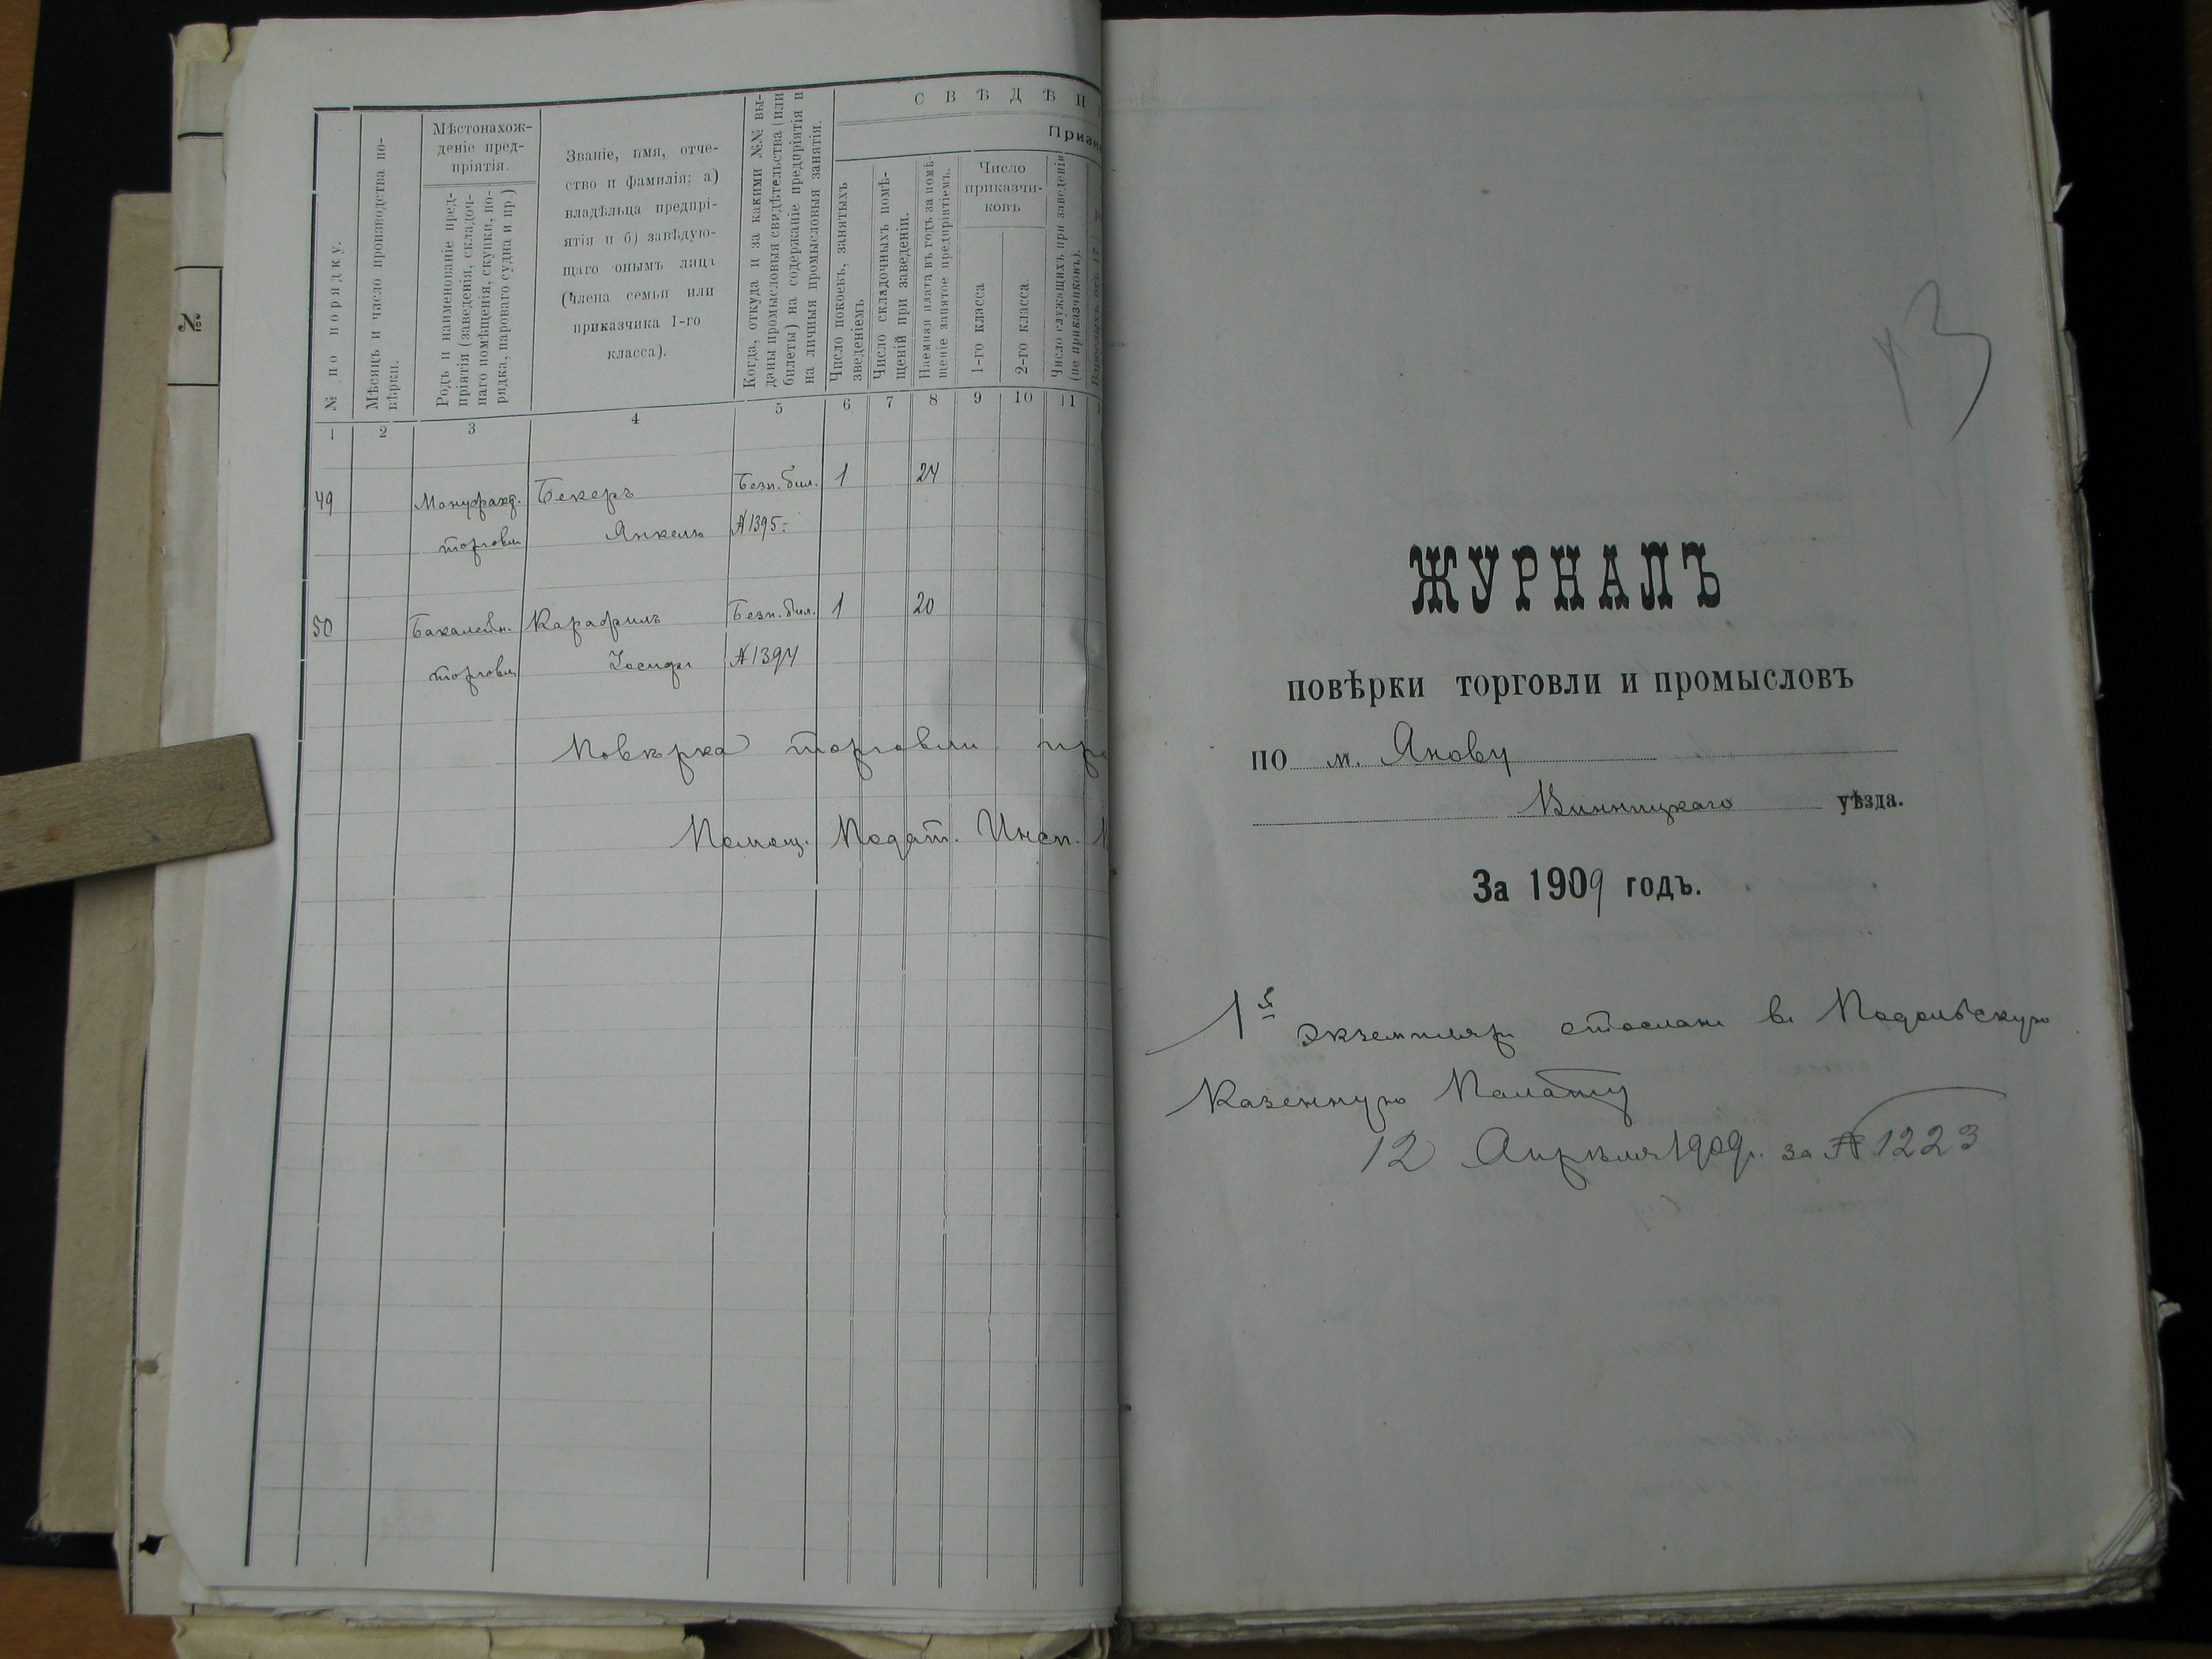 №
С В Ѣ Д Ѣ Н
№ по порядку.
Мѣсяцъ и число производства по-
вѣрки.
Мѣстонахож-
деніе пред-
пріятія.
Родъ и наименованіе пред-
пріятія (заведенія, складоч-
наго помѣщенія, скупки, по-
рядка, пароваго судна и пр.)
Званіе, имя, отче-
ство и фамилія: а)
владѣльца предпрі-
ятія и б) завѣдую-
щаго онымъ лица
(члена семьи или
приказчика 1-го
класса).
Когда, откуда и за какими №№ вы-
даны промысловыя свидѣтельства (или
билеты) на содержаніе предпріятія и
на личныя промысловыя занятія.
Число покоевъ, занятыхъ
зведеніемъ
Число складочныхъ помѣ-
щеній при заведеніи.
Наемная плата въ годъ за помѣ-
щеніе занятое предпріятіемъ.
Число
приказчи-
ковъ
1-го класса
2-го класса.
Число служащихъ при заведеніи
(не приказчиковъ).
1 2 3 4 5 6 7 8 9 10 11
49 Мануфакт. Бекеръ Безп. бил. 1 24
торговля Янкель № 1395
50 Бакалейн. Карафилъ Безп. бил. 1 20
торговля Іосифъ № 1394
Повѣрка торговли
Помощ. Подат. Инсп.
13
ЖУРНАЛЪ
повѣрки торговли и промысловъ
по м. Янову
Винницкаго уѣзда.
За 1909 годъ.
1й экземпляръ отосланъ въ Подольскую
Казенную Палату
12 Апрѣля 1909 г. за № 1223